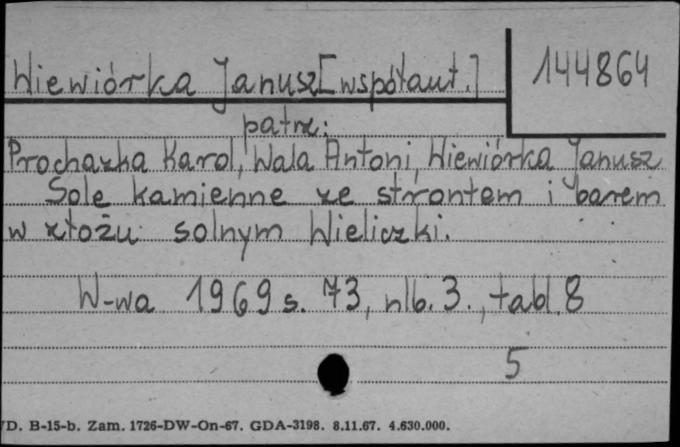 Wiewiórka Janusz [współaut.]
144864
patrz:
Prochazka Karol, Wala Antoni, Wiewiórka Janusz
Sole kamienne ze strontem i barem
w złożu solnym Wieliczki.
W-wa 1969 s. 73, nlb. 3., tabl. 8
5
/D. B-15-b. Zam. 1726-DW-On-67. GDA-3198. 8.11.67. 4.630.000.